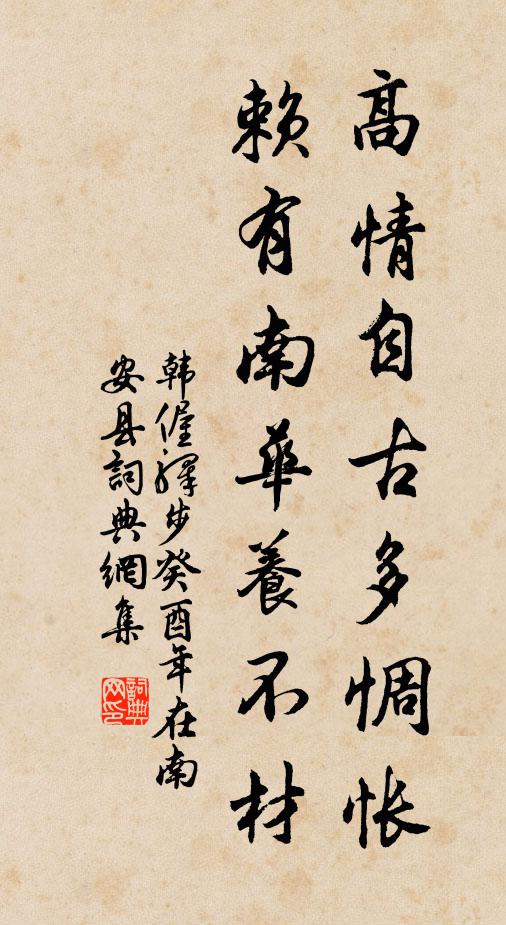 高情自古多惆怅
赖有南華養不材
韩偓驿步癸酉年在南
安县詞典網集
詞典网印